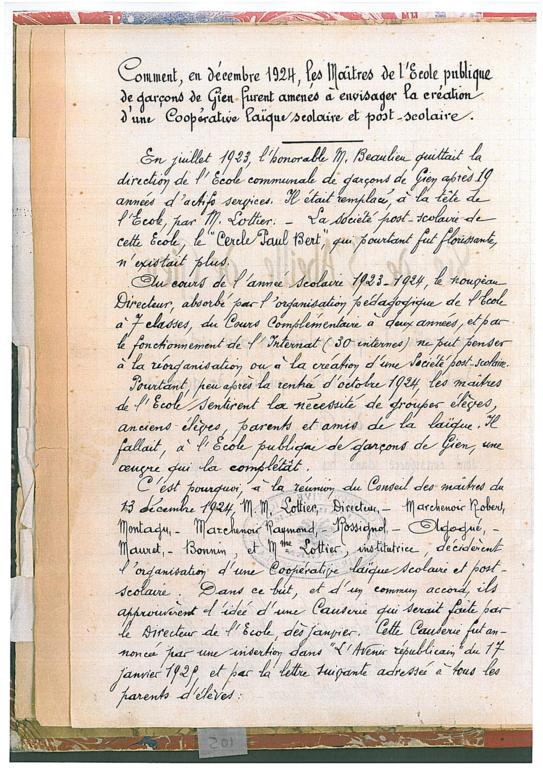 Comment, en décembre 1924, les Maîtres de l'Ecole publique
de garçons de Gien furent amenés à envisager la création
d'une Coopérative laïque scolaire et post-scolaire.
En juillet 1923, l'honorable M. Beaulieu quittait la
direction de l'Ecole communale de garçons de Gien après 19
années d'actifs services. Il était remplacé, à la tête de
l'Ecole, par M. Lottier. - La Société post-scolaire de
cette Ecole, le "Cercle Paul Bert" qui pourtant fut florissante,
n'existait plus.
Au cours de l'année scolaire 1923-1924, le nouveau
Directeur, absorbé par l'organisation pédagogique de l'Ecole
à 7 classes, du Cours Complémentaire à deux années, et par
le fonctionnement de l'Internat (30 internes) ne put penser
à la réorganisation ou à la création d'une Société post-scolaire.
Pourtant, peu après la rentrée d'octobre 1924, les maîtres
de l'Ecole sentirent la nécessité de grouper élèves,
anciens élèves, parents et amis de la laïque. Il
fallait, à l'Ecole publique de garçons de Gien, une
œuvre qui la complétât.
C'est pourquoi, à la réunion du Conseil des maîtres du
13 décembre 1924, M.M. Lottier, Directeur, - Marchenoir Robert,
Montagu, - Marchenoir Raymond, Rossignol - Agogué, -
Mauret, - Bonnin, et Mme Lottier, institutrice décidèrent
l'organisation d'une Coopérative laïque scolaire et post-
scolaire. Dans ce but, et d'un commun accord, ils
approuvèrent l'idée d'une Causerie qui serait faite par
le Directeur de l'Ecole, dès janvier. Cette Causerie fut an-
noncée par une insertion dans "L'Avenir républicain" du 17
janvier 1925, et par la lettre suivante adressée à tous les
parents d'élèves :